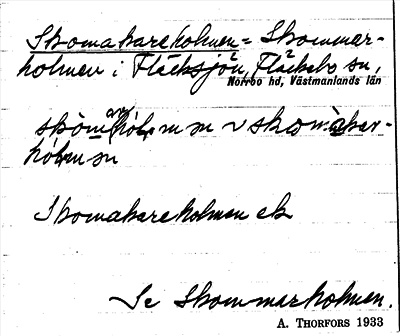 Skomakareholmen = Skommar-
holmen i Fläcksjön, Fläckebo sn,
Norrbo hd, Västmanlands län
skòm hòl m sn v skomàkar-
hòlm sn
Skomakareholmen ek
Se Skommarholmen.
A. THORFORS 1933